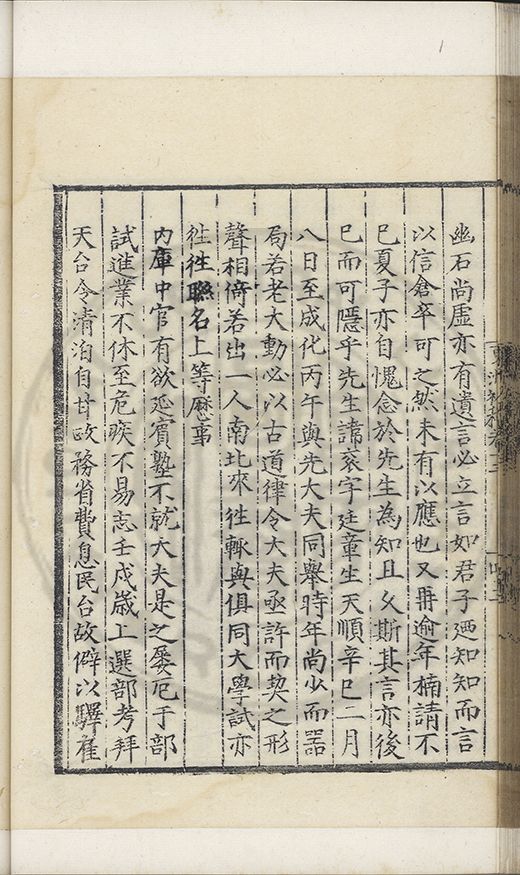 幽石尚虛亦有遺言必立言如君子廼知知而言
以信倉卒可之然未有以應也又冊逾年楠請不
巳夏子亦自愧念於先生為知且父斯其言亦後
巳而可隱乎先生諱袞字廷章生天順辛巳二月
八日至成化丙午與先大夫同舉時年尚少而器
局若老大動必以古道律令大夫亟許而契之形
聲相倚若出一人南北來徃輒與俱同大學試亦
徃徃聯名上等歷事
內庫中官有欲延賓塾不就大夫是之屢厄于部
試進業不休至危疾不易志壬戌歲上選部考拜
天台令清泊自甘政務省費息民台故僻以驛雇